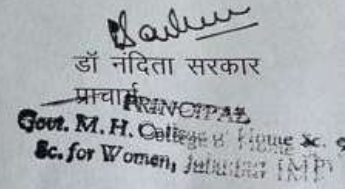 डॉ नंदिता सरकार
प्राचार्य
PRINCIPAL
Govt. M. H. College of Home Sc. &
Sc. for Women, Jabalpur (MP)